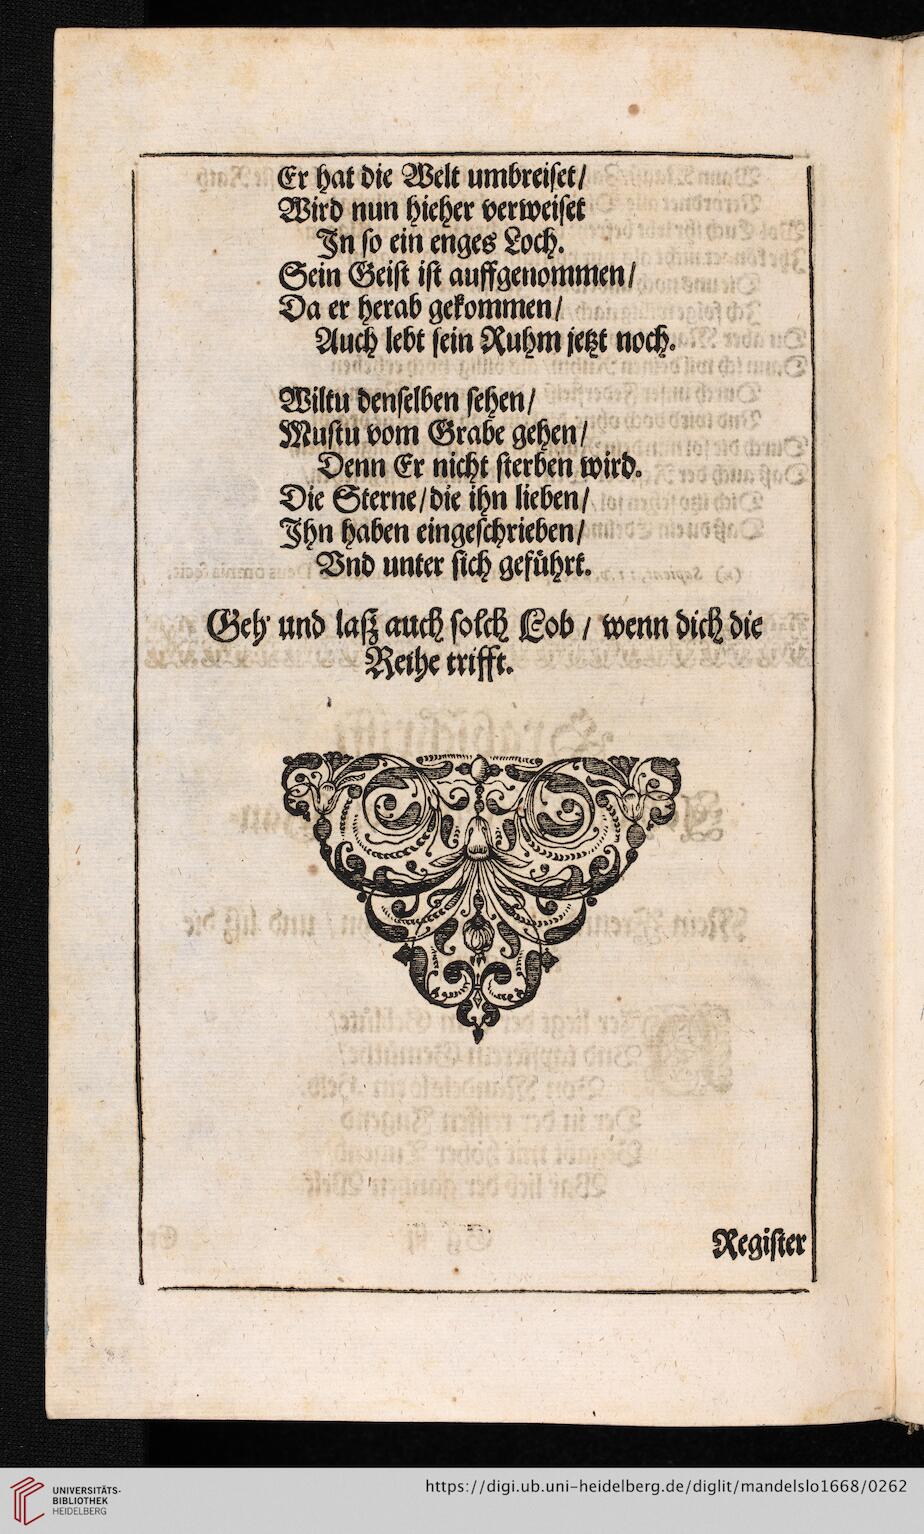 Er hat die Welt umbreiset/
Wird nun hieher verweiset
Jn so ein enges Loch.
Sein Geist ist auffgenommen/
Da er herab gekommen/
Auch lebt sein Ruhm jetzt noch.
Wiltu denselben sehen/
Mustu vom Grabe gehen/
Denn Er nicht sterben wird.
Die Sterne/die ihn lieben/
Jhn haben eingeschrieben/
Vnd unter sich geführt.
Geh und laß auch solch Lob / wenn dich die
Reihe trifft.
Register
UNIVERSITÄTS-
BIBLIOTHEK
HEIDELBERG
https://digi.ub.uni-heidelberg.de/diglit/mandelslo1668/0262